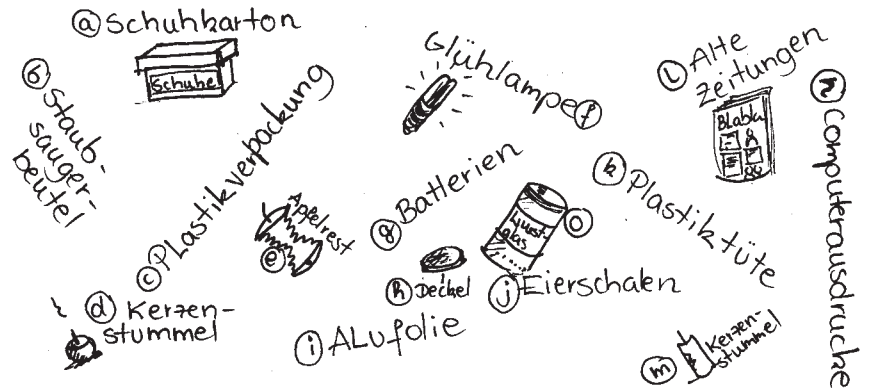 a Schuhkarton
Schuhe
b Staub-
sauger-
beutel
c Plastikverpackung
d Kerzen-
stummel
e Apfelrest
Glühlampe f
g Batterien
h Deckel
i ALufolie
j Eierschalen
k Plastiktüte
L Alte
Zeitungen
Blabla
m Kerzen-
stummel
n Computerausdrucke
o Wurst-
glas